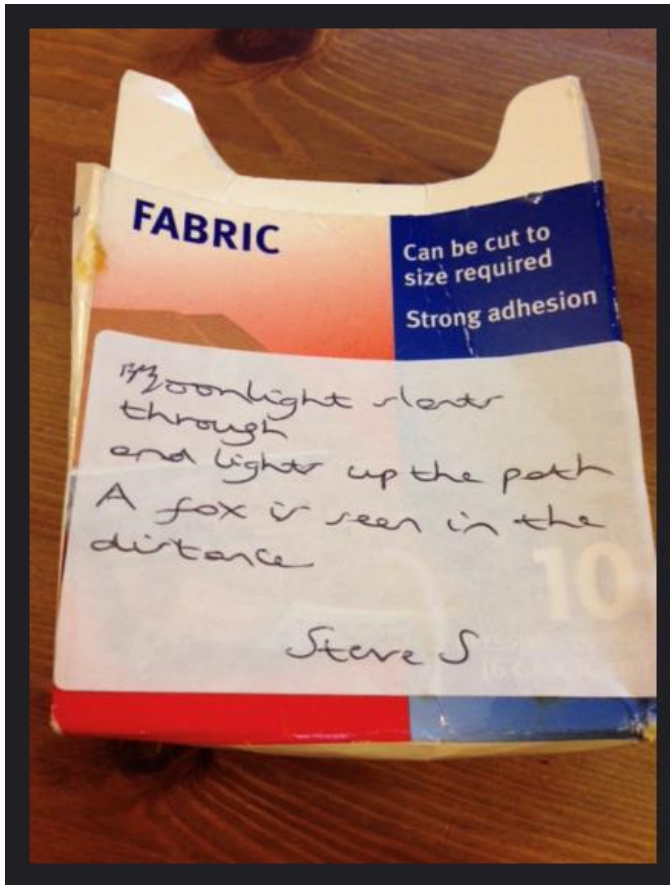 FABRIC
Can be cut to
size required
Strong adhesion
Moonlight slants
through
and lights up the path
A fox is seen in the
distance
10
Steve S